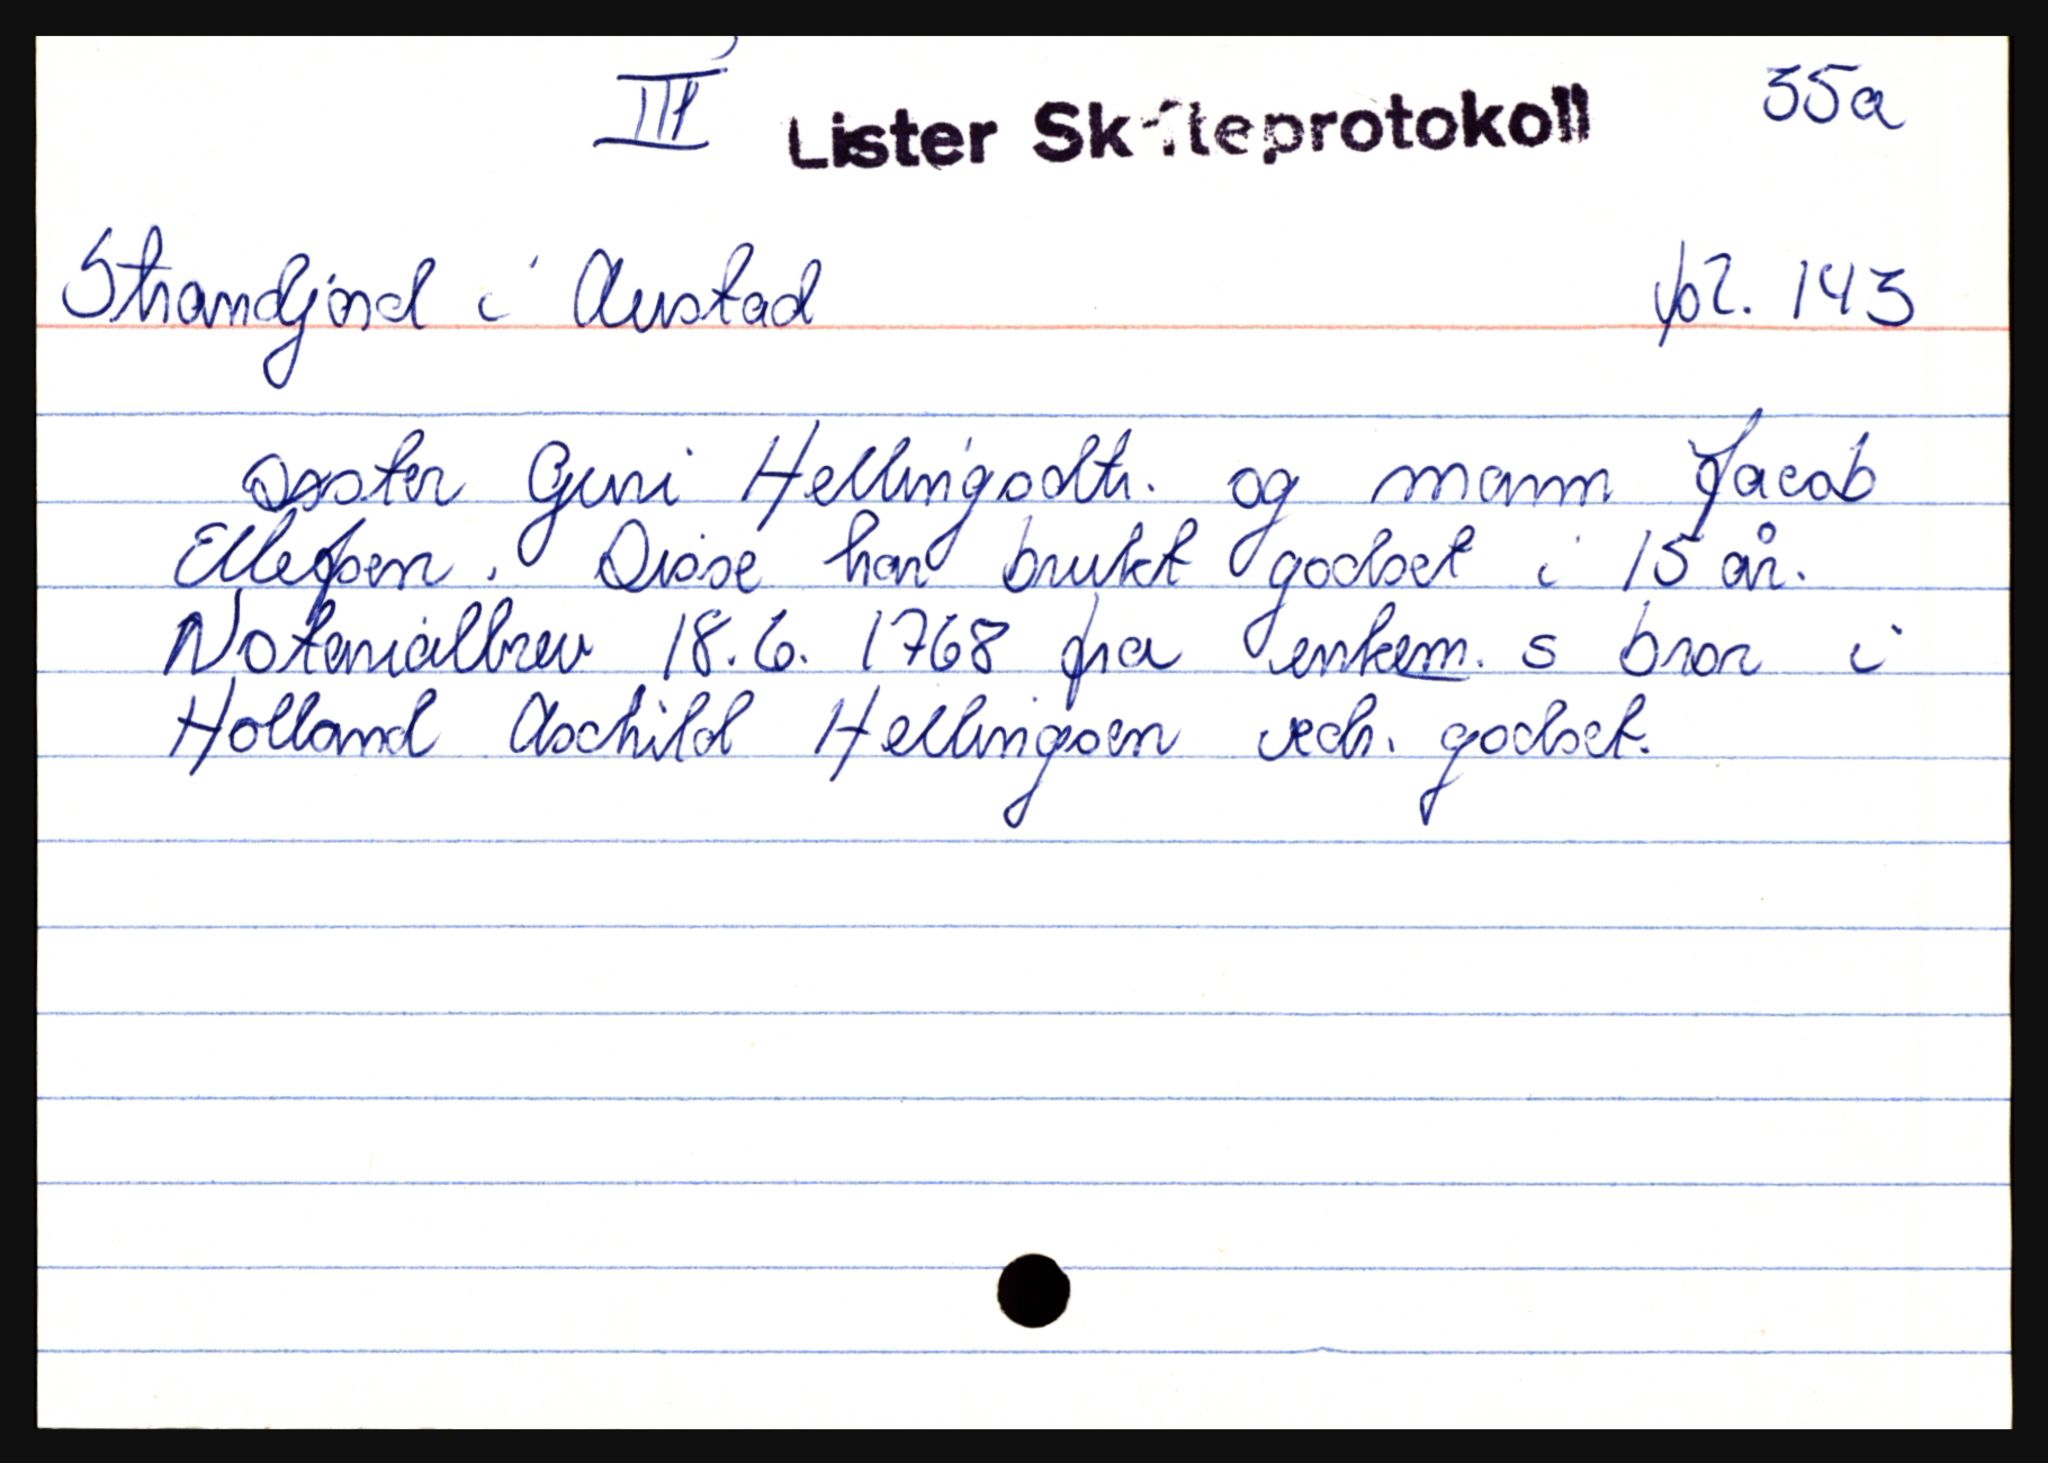 III Lister Skifteprotokoll 35a
Strandjord i Austad fol. 143
søster Guri Hellingsdtr. og mann Jacob
Ellefsen. Disse har brukt godset i 15 år.
Notarialbrev 18.6. 1768 fra enkem. s bror i
Holland Aschild Hellingsen vedr. godset.